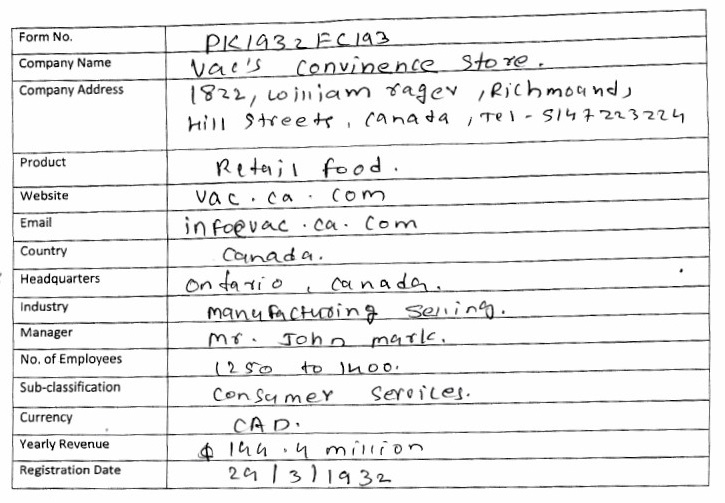 Form No. PK1932FC193
Company Name Vac's Convinence Store.
Company Address 1822, William rager, Richmoand,
Hill Streets, Canada, Tel - 5147223224
Product Retail food.
Website vac.ca.com
Email info@vac.ca.com
Country Canada.
Headquarters Ontario, Canada.
Industry Manufacturing Selling.
Manager Mr. John mark.
No. of Employees 1250 to 1400.
Sub-classification Consumer Services.
Currency CAD.
Yearly Revenue $ 144.4 million
Registration Date 29/3/1932